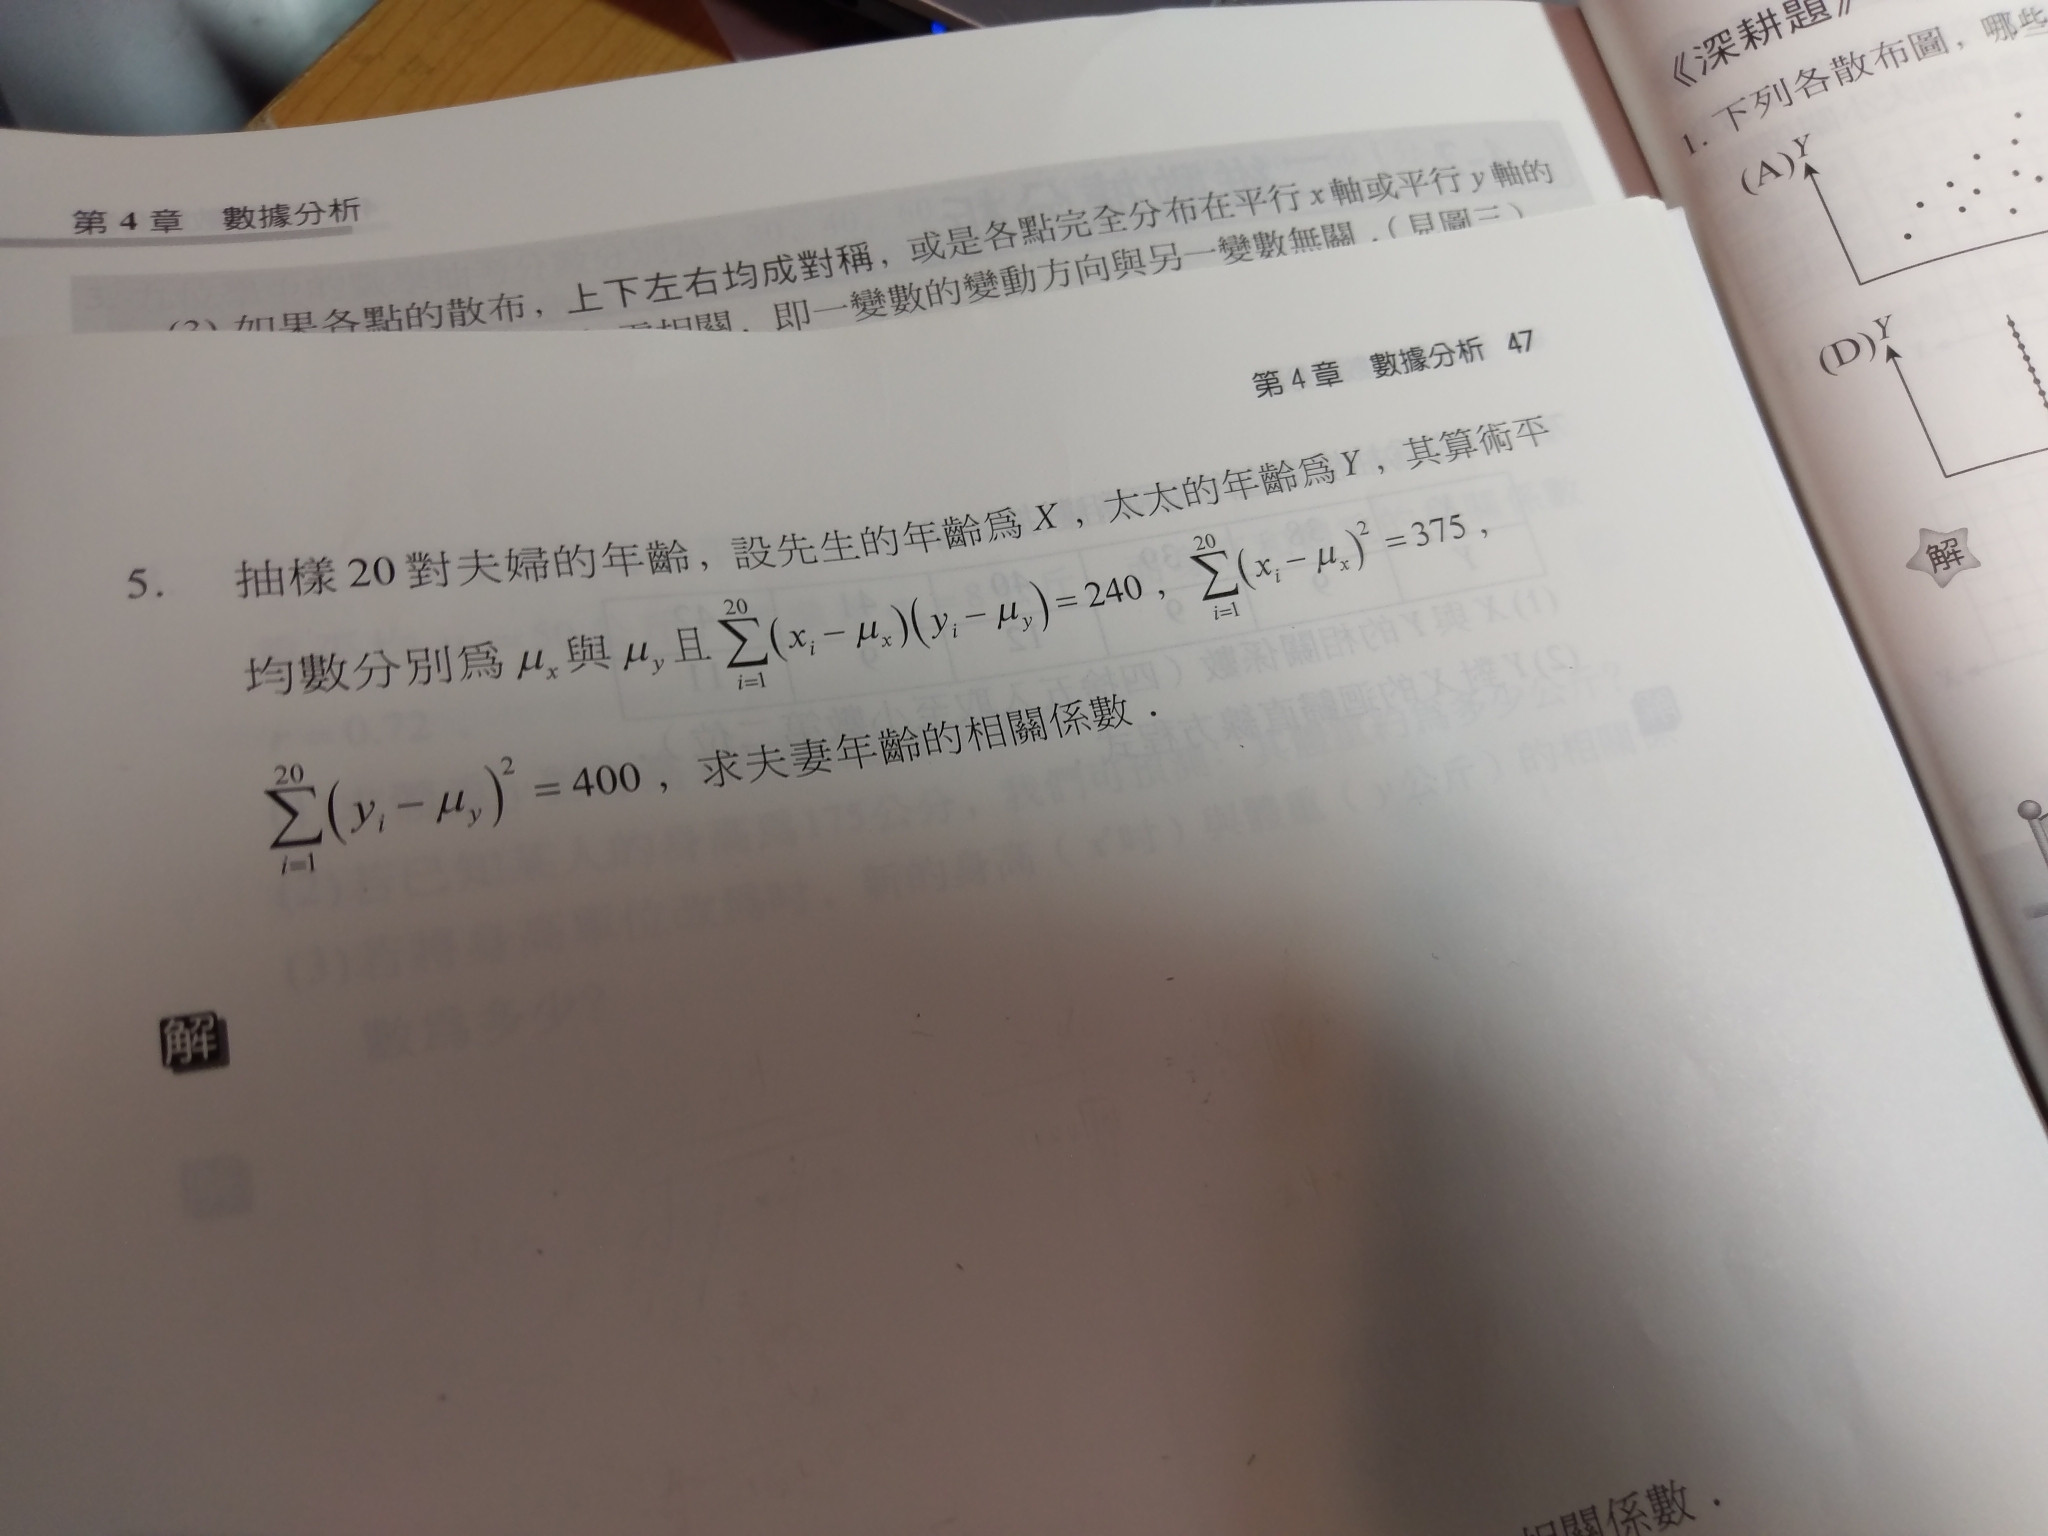 第 4 章 數據分析
(3) 如果各點的散布，上下左右均成對稱，或是各點完全分布在平行 x 軸或平行 y 軸的
相關，即一變數的變動方向與另一變數無關．(見圖三)
第 4 章 數據分析 47
5. 抽樣 20 對夫婦的年齡，設先生的年齡為 X，太太的年齡為 Y，其算術平
均數分別為 μₓ 與 μᵧ 且 ∑_{i=1}^{20}(x_i − μ_x)(y_i − μ_y) = 240，∑_{i=1}^{20}(x_i − μ_x)² = 375，
∑_{i=1}^{20}(y_i − μ_y)² = 400，求夫妻年齡的相關係數．
解
相關係數．
《深耕題》
1. 下列各散布圖，哪些
(A) Y
(D) Y
解